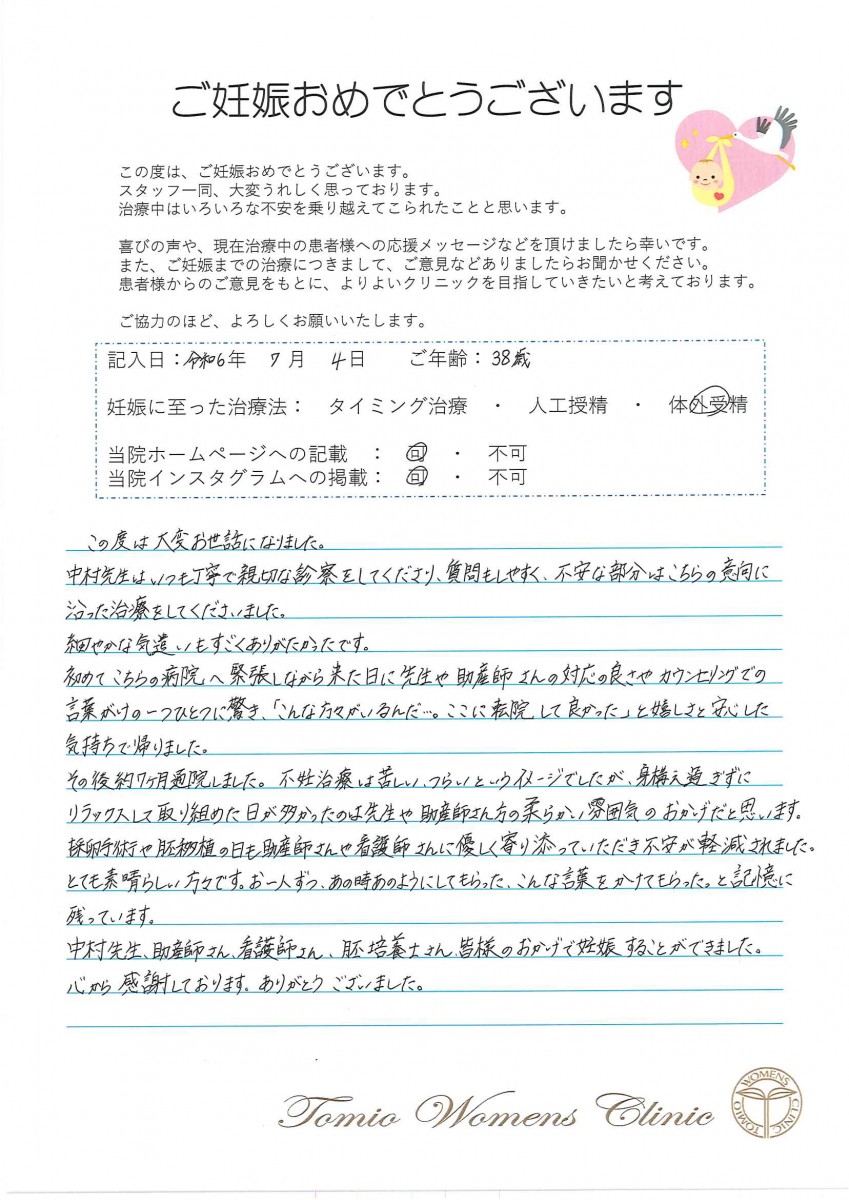 ご妊娠おめでとうございます
この度は、ご妊娠おめでとうございます。
スタッフ一同、大変うれしく思っております。
治療中はいろいろな不安を乗り越えてこられたことと思います。
喜びの声や、現在治療中の患者様への応援メッセージなどを頂けましたら幸いです。
また、ご妊娠までの治療につきまして、ご意見などありましたらお聞かせください。
患者様からのご意見をもとに、よりよいクリニックを目指していきたいと考えております。
ご協力のほど、よろしくお願いいたします。
記入日：令和6年 7月 4日 ご年齢：38歳
妊娠に至った治療法： タイミング治療 ・ 人工授精 ・ 体外受精
当院ホームページへの記載 ： 可 ・ 不可
当院インスタグラムへの掲載： 可 ・ 不可
この度は大変お世話になりました。
中村先生はいつも丁寧で親切な診察をしてくださり、質問もしやすく、不安な部分はこちらの意向に
沿った治療をしてくださいました。
細やかな気遣いもすごくありがたかったです。
初めてこちらの病院へ緊張しながら来た日に先生や助産師さんの対応の良さやカウンセリングでの
言葉がけの一つひとつに驚き、「こんな方々がいるんだ…。ここに転院して良かった」と嬉しさと安心した
気持ちで帰りました。
その後約7ヶ月通院しました。不妊治療は苦しい、つらいというイメージでしたが、身構え過ぎずに
リラックスして取り組めた日が多かったのは先生や助産師さん方の柔らかい雰囲気のおかげだと思います。
採卵手術や胚移植の日も助産師さんや看護師さんに優しく寄り添っていただき不安が軽減されました。
とても素晴らしい方々です。お一人ずつ、あの時あのようにしてもらった、こんな言葉をかけてもらった。と記憶に
残っています。
中村先生、助産師さん、看護師さん、胚培養士さん、皆様のおかげで妊娠することができました。
心から感謝しております。ありがとうございました。
Tomio Womens Clinic
TOMIO WOMENS CLINIC